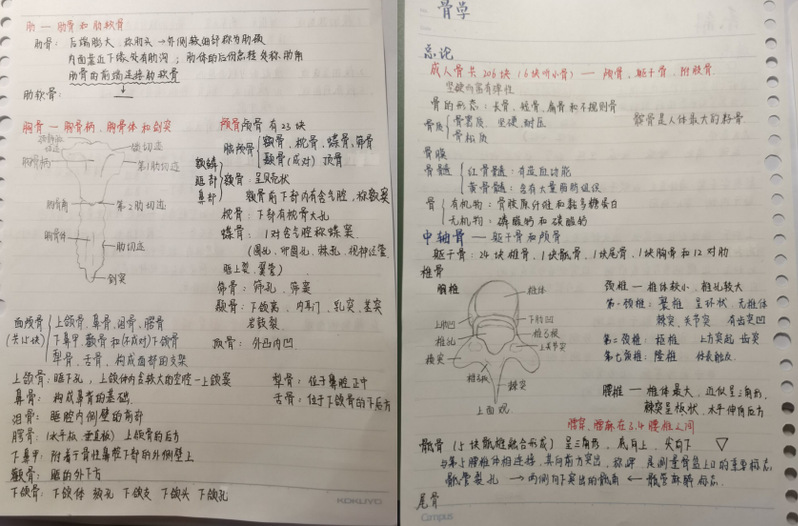 肋 — 肋骨和肋软骨
肋骨：后端膨大，称肋头 → 外侧较细称为肋颈
内面靠近下缘处有肋沟；肋体的后份急转处称肋角
肋骨的前端连接肋软骨
肋软骨：
胸骨 — 胸骨柄、胸骨体和剑突
颈切迹
锁切迹
胸骨柄
第1肋切迹
胸骨角
第2肋切迹
胸骨体
肋切迹
剑突
颅骨 颅骨有23块
脑颅骨 额骨、枕骨、蝶骨、筛骨
颞骨(成对) 顶骨
额鳞
眶部
鼻部
额骨：呈贝壳状
额骨前下部内有含气腔，称额窦
枕骨：下部有枕骨大孔
蝶骨：1对含气腔称蝶窦
(圆孔、卵圆孔、棘孔、视神经管
眶上裂、翼管)
筛骨：筛孔、筛窦
颞骨：下颌窝、内耳门、乳突、茎突
岩鼓裂
顶骨：外凸内凹
面颅骨
(共15块)
上颌骨、鼻骨、泪骨、腭骨
下鼻甲、颧骨和(不成对)下颌骨
犁骨、舌骨，构成面部的支架
上颌骨：眶下孔，上颌体内含较大的空腔—上颌窦
犁骨：位于鼻腔正中
鼻骨：构成鼻背的基础
舌骨：位于下颌骨的下后方
泪骨：眶腔内侧壁的前份
腭骨：(水平板、垂直板) 上颌骨的后方
下鼻甲：附着于骨性鼻腔下部的外侧壁上
颧骨：眶的外下方
下颌骨：下颌体 颏孔 下颌支 下颌头 下颌孔
KOKUYO
骨学
总论
成人骨共206块(6块听小骨) — 颅骨、躯干骨、附肢骨
坚硬而富有弹性
骨的形态：长骨、短骨、扁骨和不规则骨
骨质 骨密质：坚硬、耐压
骨松质
髌骨是人体最大的籽骨
骨膜
骨髓 红骨髓：有造血功能
黄骨髓：含有大量脂肪组织
骨 有机物：骨胶原纤维和黏多糖蛋白
无机物：磷酸钙和碳酸钙
中轴骨 — 躯干骨和颅骨
躯干骨：24块椎骨、1块骶骨、1块尾骨、1块胸骨和12对肋
椎骨
胸椎
椎体
上肋凹
下肋凹
椎孔
椎弓根
上关节突
横突
椎弓板
棘突
上面观
颈椎 — 椎体较小、椎孔较大
第一颈椎：寰椎 呈环状、无椎体
棘突、关节突 有齿突凹
第二颈椎：枢椎 上方突起 齿突
第七颈椎：隆椎
腰椎 — 椎体最大，近似呈三角形，
棘突呈板状，水平伸向后方
腰穿、腰麻在3.4腰椎之间
骶骨 (5块骶椎融合形成) 呈三角形，底向上，尖向下
与第5腰椎体相连接，其向前力突出，称岬，是测量骨盆上口的重要标志
骶管裂孔 → 两侧向下突出的骶角 ← 骶管麻醉标志
尾骨
Campus